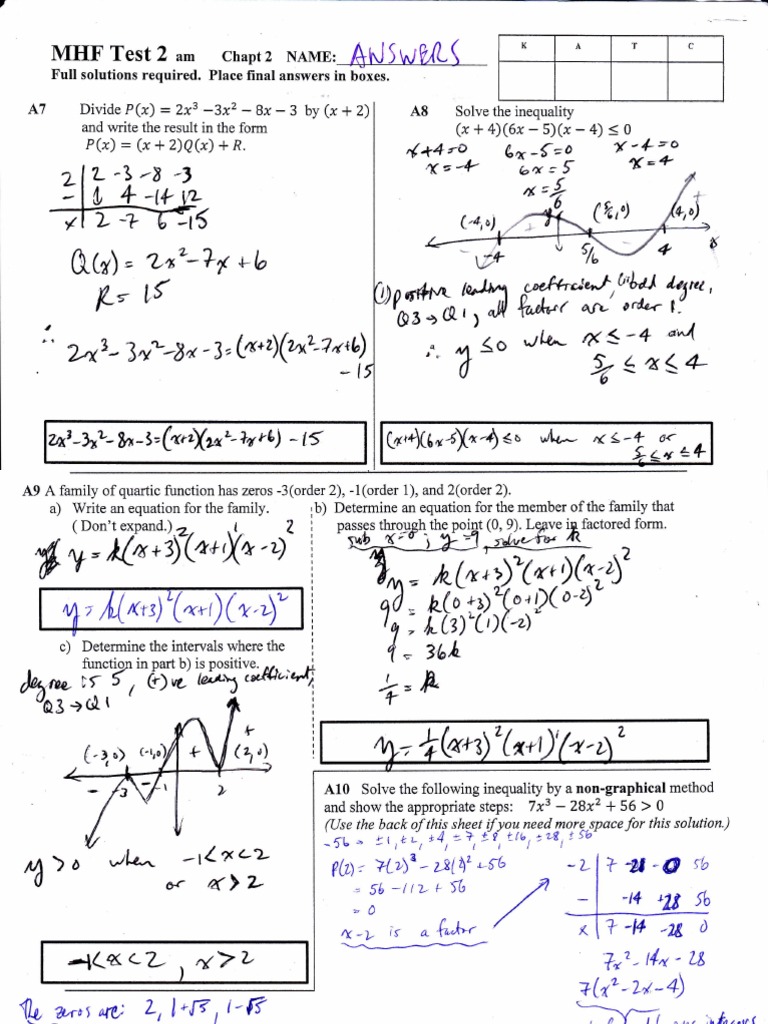 MHF Test 2 am Chapt 2 NAME: ANSWERS
Full solutions required. Place final answers in boxes.
K A T C
A7 Divide P(x) = 2x³ −3x² − 8x − 3 by (x + 2)
and write the result in the form
P(x) = (x + 2)Q(x) + R.
2 | 2 -3 -8 -3
- | ↓ 4 -14 12
x | 2 -7 6 -15
Q(x) = 2x² - 7x + 6
R = 15
∴ 2x³ - 3x² - 8x - 3 = (x+2)(2x² - 7x + 6)
- 15
2x³-3x²-8x-3=(x+2)(2x²-7x+6) -15
A8 Solve the inequality
(x + 4)(6x − 5)(x − 4) ≤ 0
x+4=0 6x-5=0 x-4=0
x=-4 6x=5 x=4
x=5/6
(-4,0) y (5/6,0) (4,0)
-4 5/6 4 x
(1) positive leading coefficient, odd degree,
Q3→Q1, all factors are order 1.
∴ y ≤0 when x ≤ -4 and
5/6 ≤ x ≤ 4
(x+4)(6x-5)(x-4) ≤0 when x ≤ -4 or
5/6 ≤ x ≤ 4
A9 A family of quartic function has zeros -3(order 2), -1(order 1), and 2(order 2).
a) Write an equation for the family.
( Don't expand.)
y = k(x+3)²(x+1)¹(x-2)²
y = k(x+3)²(x+1)(x-2)²
b) Determine an equation for the member of the family that
passes through the point (0, 9). Leave in factored form.
sub x=0, y=9, solve for k
y = k(x+3)²(x+1)(x-2)²
9 = k(0+3)²(0+1)(0-2)²
9 = k(3)²(1)(-2)²
9 = 36k
1/4 = k
y = 1/4(x+3)²(x+1)¹(x-2)²
c) Determine the intervals where the
function in part b) is positive.
degree is 5, (+)ve leading coefficient,
Q3→Q1
(-3,0) (-1,0) + (2,0) +
- -3 - -1 2
y>0 when -1<x<2
or x>2
-1<x<2 , x>2
The zeros are: 2, 1+√5, 1-√5
A10 Solve the following inequality by a non-graphical method
and show the appropriate steps: 7x³ − 28x² + 56 > 0
(Use the back of this sheet if you need more space for this solution.)
-56 = ±1, ±2, ±4, ±7, ±8, ±16, ±28, ±56
P(2) = 7(2)³ - 28(2)² +56
= 56 -112 + 56
= 0
x-2 is a factor
-2 | 7 -28 0 56
- | -14 +28 56
x | 7 -14 -28 0
7x² - 14x - 28
7(x² - 2x - 4)